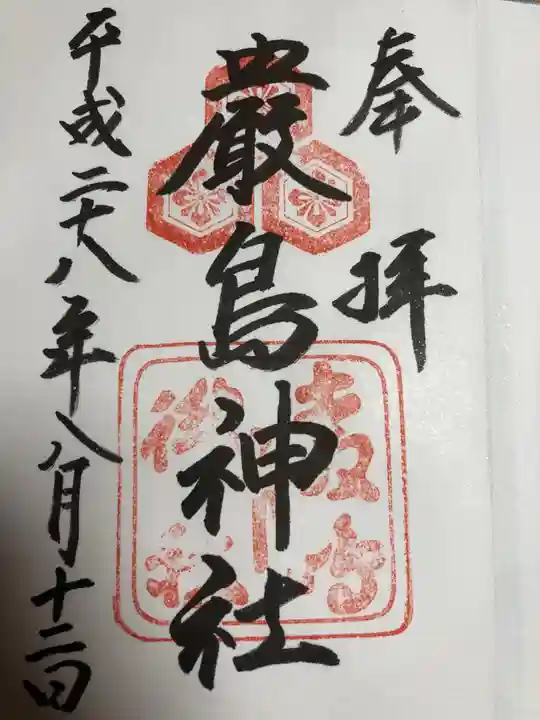 奉拝
嚴島神社
平成二十八年八月十二日